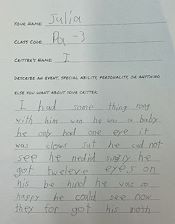 YOUR NAME: Julia
CLASS CODE: Pa-3
CRITTER'S NAME: I
DESCRIBE AN EVENT, SPECIAL ABILITY, PERSONALITY, OR ANYTHING
ELSE YOU WANT ABOUT YOUR CRITTER:
I had some thing rong
with him wan he was a baby
he only had one eye it
was clows but he cud not
see he nedid surjry he
got tweleve eyes on
his be hind he was so
happy he could see now
they for got his moth